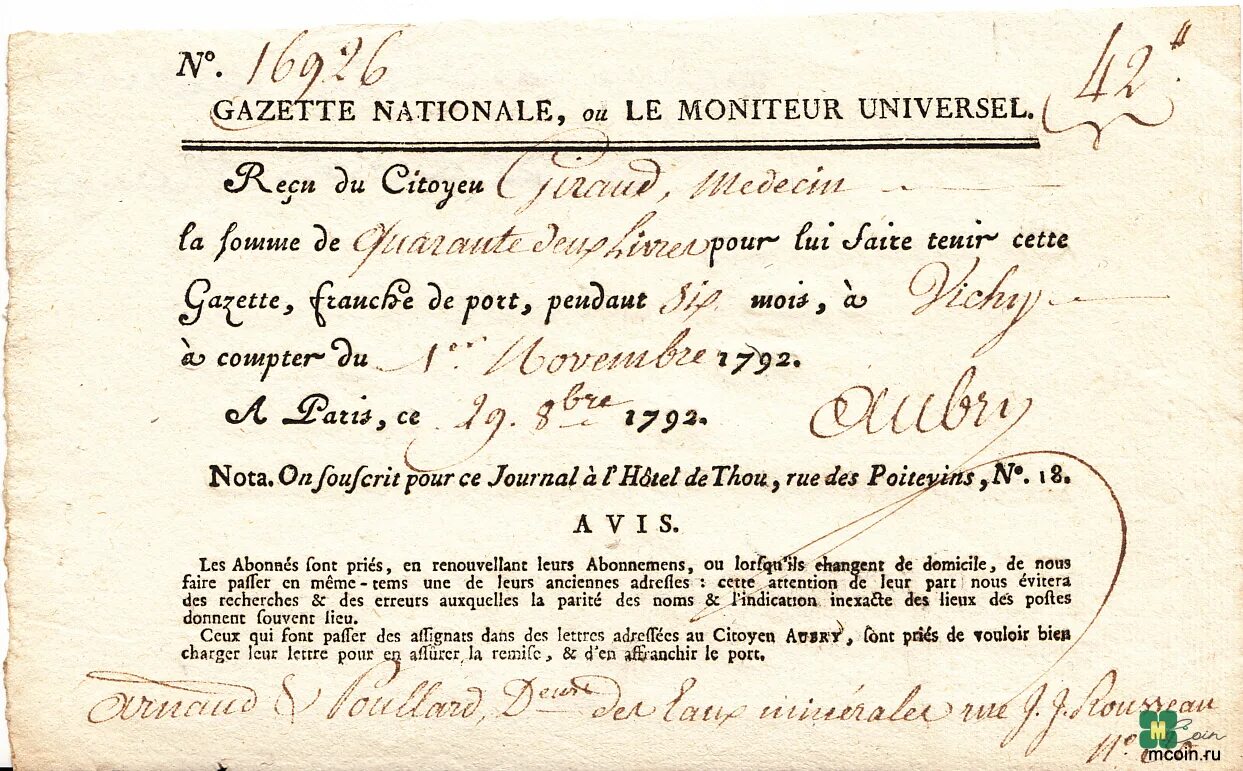 Nº. 16926
42ᵗᵗ
GAZETTE NATIONALE, ou LE MONITEUR UNIVERSEL.
Reçu du Citoyen Giraud, Medecin
la ſomme de Quarante deux Livres pour lui faire tenir cette
Gazette, franche de port, pendant Six mois, à Vichy
à compter du 1er. Novembre 1792.
A Paris, ce 29. 8bre 1792. Aubry
Nota. On ſouſcrit pour ce Journal à l'Hôtel de Thou, rue des Poitevins, Nº. 18.
AVIS.
Les Abonnés ſont priés, en renouvellant leurs Abonnemens, ou lorſqu'ils changent de domicile, de nous
faire paſſer en même-tems une de leurs anciennes adreſſes : cette attention de leur part nous évitera
des recherches & des erreurs auxquelles la parité des noms & l'indication inexacte des lieux des poſtes
donnent ſouvent lieu.
Ceux qui font paſſer des aſſignats dans des lettres adreſſées au Citoyen AUBRY, ſont priés de vouloir bien
charger leur lettre pour en aſſurer la remiſe, & d'en affranchir le port.
Arnaud & Poullard, Deurs des Eaux minérales rue J. J. Rousseau
nº.
M Coin
mcoin.ru